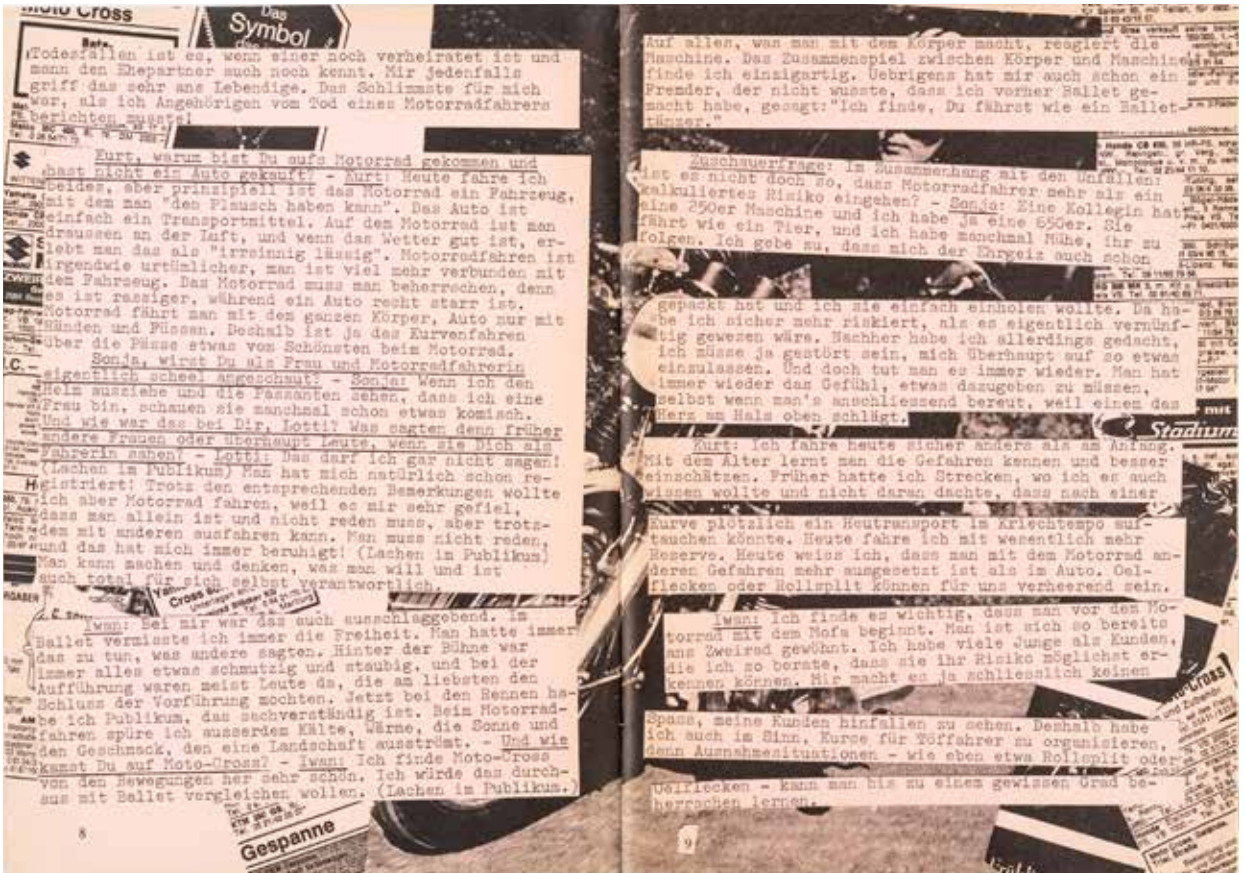 Moto Cross
Das
Symbol
Todesfällen ist es, wenn einer noch verheiratet ist und
mann den Ehepartner auch noch kennt. Mir jedenfalls
griff das sehr ans Lebendige. Das Schlimmste für mich
war, als ich Angehörigen vom Tod eines Motorradfahrers
berichten musste!
Kurt, warum bist Du aufs Motorrad gekommen und
hast nicht ein Auto gekauft? - Kurt: Heute fahre ich
beides, aber prinzipiell ist das Motorrad ein Fahrzeug,
mit dem man "den Plausch haben kann". Das Auto ist
einfach ein Transportmittel. Auf dem Motorrad ist man
draussen an der Luft, und wenn das Wetter gut ist, er-
lebt man das als "irrsinnig lässig". Motorradfahren ist
irgendwie urtümlicher, man ist viel mehr verbunden mit
dem Fahrzeug. Das Motorrad muss man beherrschen, denn
es ist rassiger, während ein Auto recht starr ist.
Motorrad fährt man mit dem ganzen Körper, Auto nur mit
Händen und Füssen. Deshalb ist ja das Kurvenfahren
über die Pässe etwas vom Schönsten beim Motorrad.
Sonja, wirst Du als Frau und Motorradfahrerin
eigentlich scheel angeschaut? - Sonja: Wenn ich den
Helm ausziehe und die Passanten sehen, dass ich eine
Frau bin, schauen sie manchmal schon etwas komisch.
Und wie war das bei Dir, Lotti? Was sagten denn früher
andere Frauen oder überhaupt Leute, wenn sie Dich als
Fahrerin sahen? - Lotti: Das darf ich gar nicht sagen!
(Lachen im Publikum) Man hat mich natürlich schon re-
gistriert! Trotz den entsprechenden Bemerkungen wollte
ich aber Motorrad fahren, weil es mir sehr gefiel,
dass man allein ist und nicht reden muss, aber trotz-
dem mit anderen ausfahren kann. Man muss nicht reden,
und das hat mich immer beruhigt! (Lachen im Publikum)
Man kann machen und denken, was man will und ist
auch total für sich selbst verantwortlich
Iwan: Bei mir war das auch ausschlaggebend. Im
Ballet vermisste ich immer die Freiheit. Man hatte immer
das zu tun, was andere sagten. Hinter der Bühne war
immer alles etwas schmutzig und staubig, und bei der
Aufführung waren meist Leute da, die am liebsten den
Schluss der Vorführung mochten. Jetzt bei den Rennen ha-
be ich Publikum, das sachverständig ist. Beim Motorrad-
fahren spüre ich ausserdem Kälte, Wärme, die Sonne und
den Geschmack, den eine Landschaft ausströmt. - Und wie
kamst Du auf Moto-Cross? - Iwan: Ich finde Moto-Cross
von den Bewegungen her sehr schön. Ich würde das durch-
aus mit Ballet vergleichen wollen. (Lachen im Publikum.)
8
Gespanne
Auf alles, was man mit dem Körper macht, reagiert die
Maschine. Das Zusammenspiel zwischen Körper und Maschine
finde ich einzigartig. Uebrigens hat mir auch schon ein
Fremder, der nicht wusste, dass ich vorher Ballet ge-
macht habe, gesagt:"Ich finde, Du fährst wie ein Ballet-
tänzer."
Zuschauerfrage: Im Zusammenhang mit den Unfällen:
ist es nicht doch so, dass Motorradfahrer mehr als ein
kalkuliertes Risiko eingehen? - Sonja: Eine Kollegin hat
eine 250er Maschine und ich habe ja eine 650er. Sie
fährt wie ein Tier, und ich habe manchmal Mühe, ihr zu
folgen. Ich gebe zu, dass mich der Ehrgeiz auch schon
gepackt hat und ich sie einfach einholen wollte. Da ha-
be ich sicher mehr riskiert, als es eigentlich vernünf-
tig gewesen wäre. Nachher habe ich allerdings gedacht,
ich müsse ja gestört sein, mich überhaupt auf so etwas
einzulassen. Und doch tut man es immer wieder. Man hat
immer wieder das Gefühl, etwas dazugeben zu müssen,
selbst wenn man's anschliessend bereut, weil einem das
Herz am Hals oben schlägt.
Stadium
Kurt: Ich fahre heute sicher anders als am Anfang.
Mit dem Alter lernt man die Gefahren kennen und besser
einschätzen. Früher hatte ich Strecken, wo ich es auch
wissen wollte und nicht daran dachte, dass nach einer
Kurve plötzlich ein Heutransport im Kriechtempo auf-
tauchen könnte. Heute fahre ich mit wesentlich mehr
Reserve. Heute weiss ich, dass man mit dem Motorrad an-
deren Gefahren mehr ausgesetzt ist als im Auto. Oel-
flecken oder Rollsplit können für uns verheerend sein.
Iwan: Ich finde es wichtig, dass man vor dem Mo-
torrad mit dem Mofa beginnt. Man ist sich so bereits
ans Zweirad gewöhnt. Ich habe viele Junge als Kunden,
die ich so berate, dass sie ihr Risiko möglichst er-
kennen können. Mir macht es ja schliesslich keinen
Spass, meine Kunden hinfallen zu sehen. Deshalb habe
ich auch im Sinn, Kurse für Töffahrer zu organisieren,
denn Ausnahmesituationen - wie eben etwa Rollsplit oder
Oelflecken - kann man bis zu einem gewissen Grad be-
herrschen lernen.
9